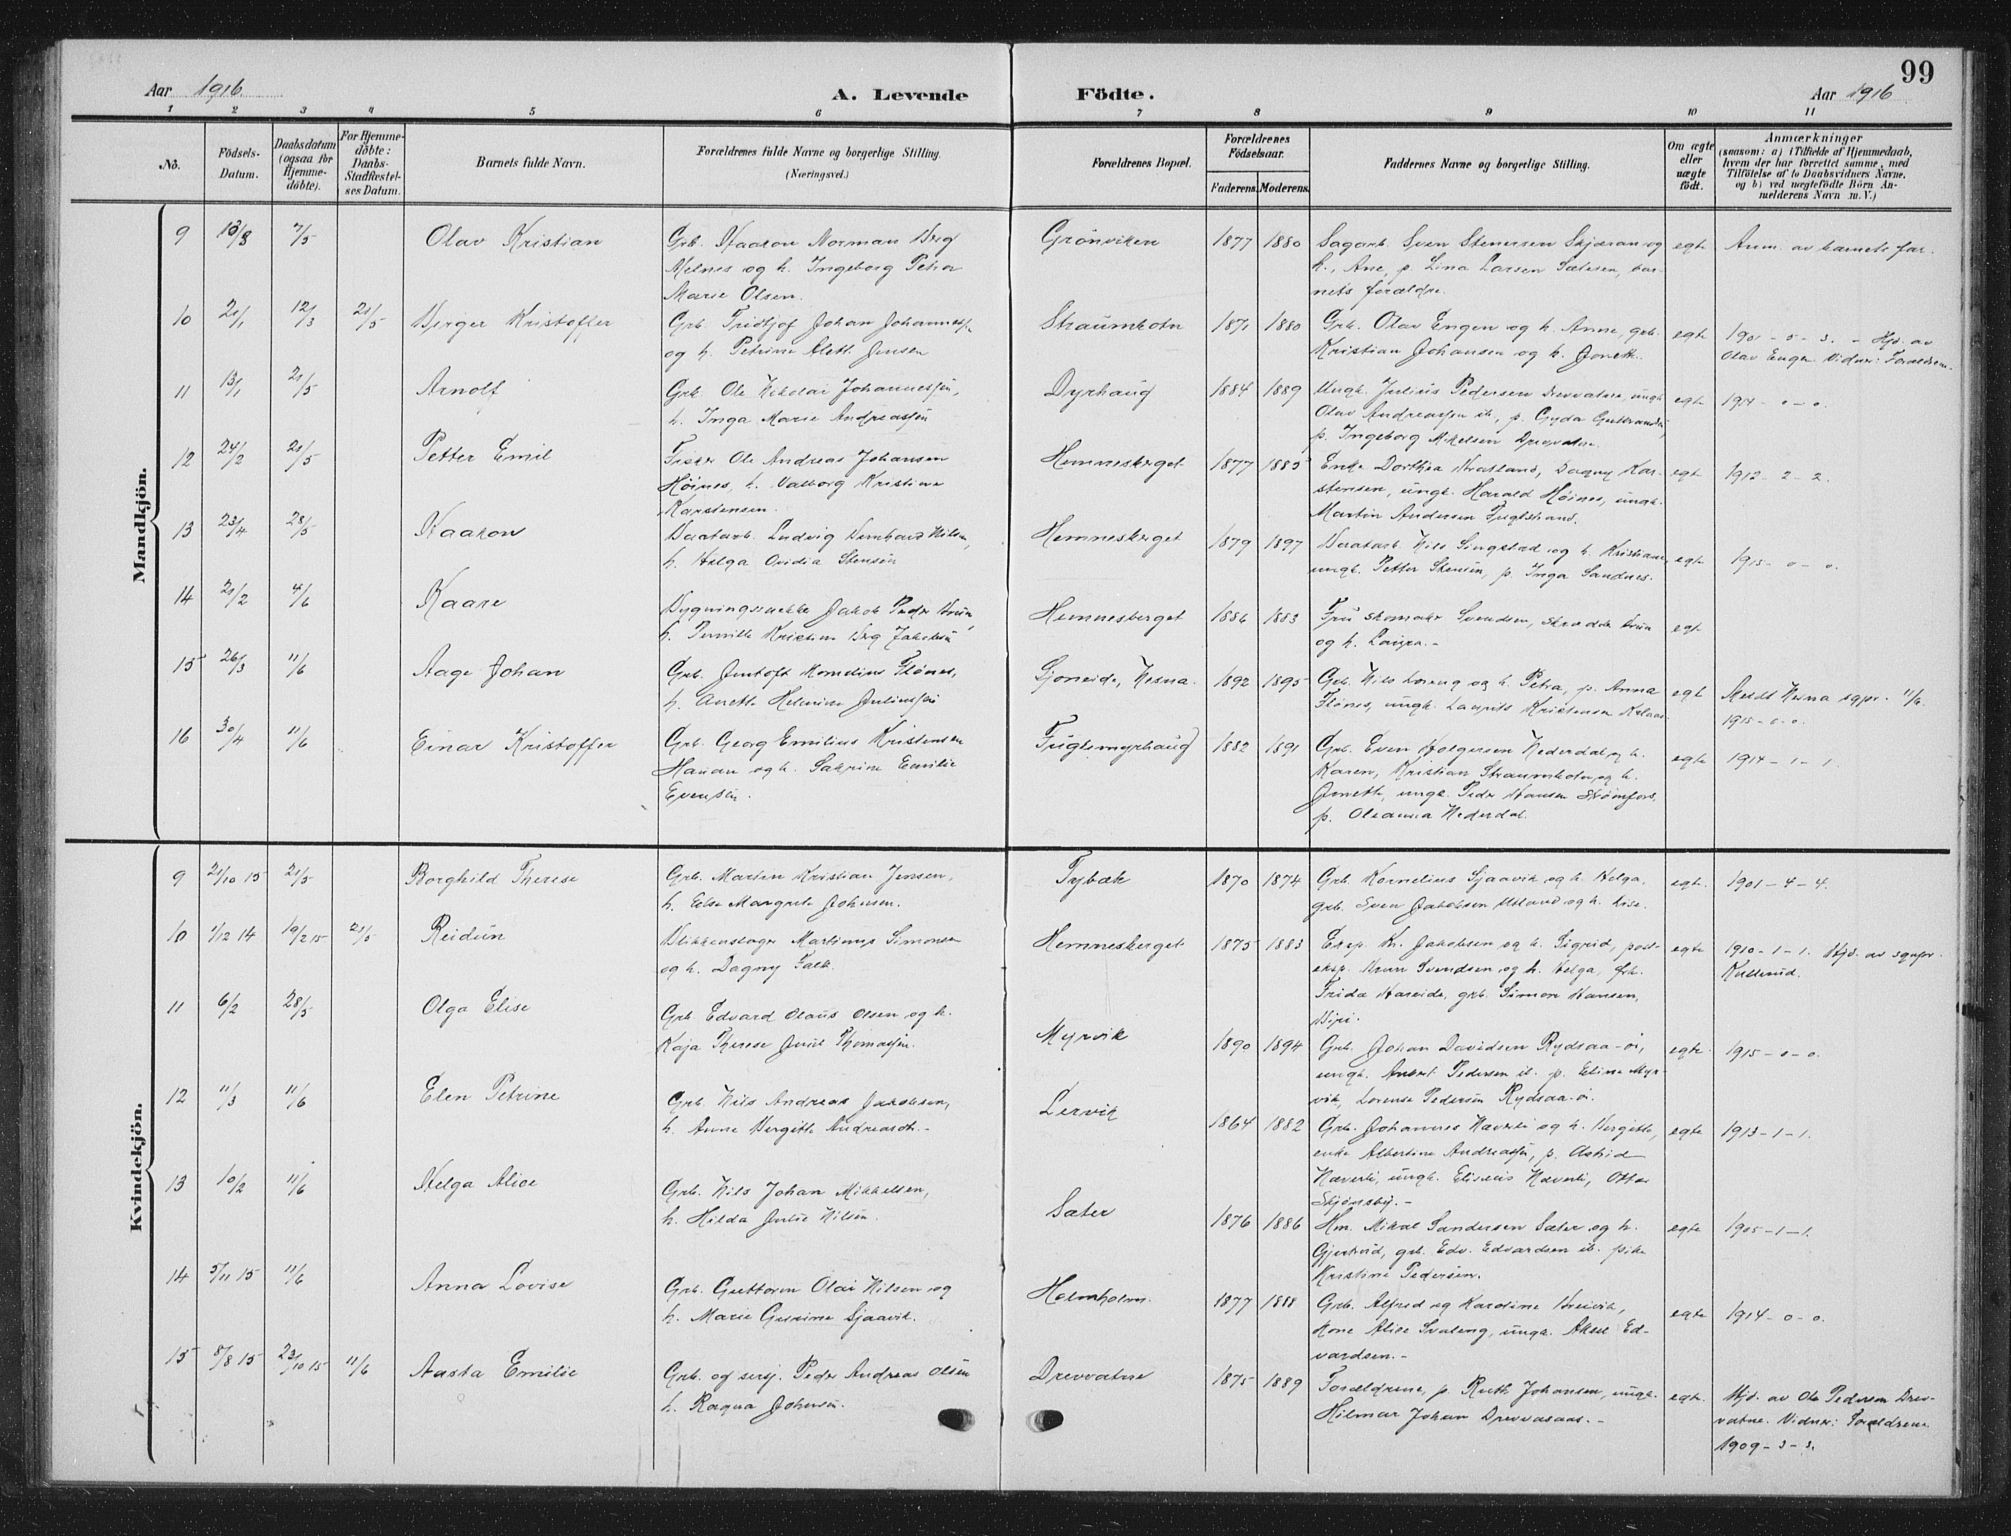 99
Aar 1916
A. Levende Födte.
Aar 1916
1 2 3 4 5 6 7 8 9 10 11
No.
Födsels-Datum.
Daabsdatum (ogsaa for Hjemmedöbte).
For Hjemmedöbte: Daabs-Stadfestelses Datum.
Barnets fulde Navn.
Forældrenes fulde Navne og borgerlige Stilling. (Næringsvei.)
Forældrenes Bopæl.
Forældrenes Födselsaar.
Faderens. Moderens.
Faddernes Navne og borgerlige Stilling.
Om ægte eller uægte födt.
Anmærkninger
(saasom: a) i Tilfælde af Hjemmedaab, hvem der har forrettet samme, med Tilföielse af to Daabsvidners Navne, og b) ved uægtefödte Börn Anmelderens Navn m. V.)
Mandkjön.
9 7/5 Olav Kristian
Grb. Haakon Norman Berg
Melnes og h. Ingeborg Petra
Marie Olsen.
Grönviken 1877 1880
Sagarb. Sven Stenersen Skjæran og
h., Ane, p. Lina Larsen Sætesen, bar-
nets forældre.
egte Anm. av barnets far.
10 21/1 12/3 21/5 Birger Kristoffer
Grb. Fridtjof Johan Johanness.
og h. Petrine Alett Jensen
Straumbotn 1871 1880
Grb. Olav Engen og h. Anne, grb.
Kristian Johansen og h. Jonette
egte 1901 - 5 - 3. - Hjd. av
Olav Engen Vidner: Forældrene.
11 13/1 21/5 Arnolf
Grb. Ole Nikolai Johannessen,
h. Inga Marie Andreassen
Dyrhaug 1884 1889
Ungk. Julius Pedersen Drevvatne, ungk.
Olav Andreassen ib., p. Gyda
p. Ingeborg Mikelsen Drevvatne.
egte 1914 - 0 - 0.
12 24/2 21/5 Petter Emil
Fisker Ole Andreas Johansen
Höines, h. Valborg Kristine
Karstensen.
Hemnesberget 1877 1885
Enke Dorthea Bratland, Dagny Kar-
stensen, ungk. Harald Höines, ungk.
Martin Andersen Fuglstrand.
egt 1912 - 2 - 2.
13 23/4 28/5 Haakon
Baatarb. Ludvig Bernhard Nilsen,
h. Helga Ovidia Stensen
Hemnesberget 1879 1897
Baatarb. Nils Singstad og h. Kristiane,
ungk. Petter Stensen, p. Inga Sandnes.
egte 1915 - 0 - 0.
14 21/2 4/6 Kaare
Bygningssnekker Jakob Peder Bruun,
h. Pernille Kristine Berg Jakobsen
Hemnesberget 1886 1883
Fru skomaker Svendsen, skredder Bruun
og h. Laura. -
egt
15 26/3 11/6 Aage Johan
Grb. Jentoft Kornelius Flönes,
h. Anette Helmine Juliussen
Sjoneide, Nesna. 1892 1895
Grb. Nils Loreng og h. Petra, p. Anna
Flönes, ungk. Laurits Kristensen
egt Meldt Nesna sgpr. 11/6
1915 - 0 - 0.
16 30/4 11/6 Einar Kristoffer
Grb. Georg Emilius Kristensen
Hauan og h. Sakrine Emilie
Evensen.
Fuglemyrhaug 1882 1891
Grb. Even Holgersen Nederdal og h.
Karen, Kristian Straumbotn og h.
Jonette, ungk. Peder Hansen Strömfors,
p. Oleanna Nederdal.
egte 1914 - 1 - 1.
Kvindekjön.
9 21/10 15 21/5 Borghild Therese
Grb. Martin Kristian Jensen,
h. Else Margrete Johnsen.
Tybæk 1870 1874
Grb. Kornelius Sjaavik og h. Helga,
grb. Sven Jakobsen Utland og h. Lise.
egte. 1901 - 4 - 4.
10 1/12 14 19/2 15 21/5 Reidun
Blikkenslager Martinus Simonsen
og h. Dagny Falk.
Hemnesberget 1875 1883
Exsp. Kr. Jakobsen og h. Sigrid, post-
eksp. Brun Svendsen og h. Helga, frk.
Frida Hareide, grb. Simon Hansen,
egte 1910 - 1 - 1. Hjd. av sgnpr.
11 6/2 28/5 Olga Elise
Grb. Edvard Olaus Olsen og h.
Kaja Therese Juul Thomassen.
Myrvik 1890 1894
Grb. Johan Davidsen Rydsaa-öi,
ungk. Anbert Pedersen ib. p. Eline Myr-
vik, Lorense Pedersen Rydsaa-öi.
egte. 1915 - 0 - 0.
12 11/3 11/6 Elen Petrine
Grb. Nils Andreas Jakobsen,
h. Anne Bergitte Andreasdt. -
Lervik 1864 1882
Grb. Johannes Næverli og h. Bergitte,
enke Albertine Andreassen, p. Astrid
Næverli, ungk. Eliseus Næverli, Otto
Skjönsby. -
egte 1913 - 1 - 1.
13 10/2 11/6 Helga Alice
Grb. Nils Johan Mikkelsen,
h. Hilda Julie Nilsen.
Sæter 1876 1886
Hm. Mikal Sandersen Sæter og h.
Gjertrud, grb. Edv. Edvardsen ib. pike
Kristine Pedersen.
egte 1905 - 1 - 1.
14 5/11 15 11/6 Anna Lovise
Grb. Guttorm Olai Nilsen og
h. Marie Gurine Sjaavik.
Holmholm. 1877 1888
Grb. Alfred og Karoline Breivik,
kone Alice Svaleng, ungk. Aksel Ed-
vardsen. -
egte 1914 - 0 - 0.
15 8/8 15 23/10 15 11/6 Aasta Emilie
Grb. og sersj. Peder Andreas Olsen
h. Ragna Johnsen.
Drevvatne 1875 1889
Forældrene, p. Ruth Johansen, ungk.
Hilmar Johan Drevvasaas. -
egte. Hjd. av Ole Pedersen Drev-
vatne. Vidner: Forældrene
1909 - 3 - 3.